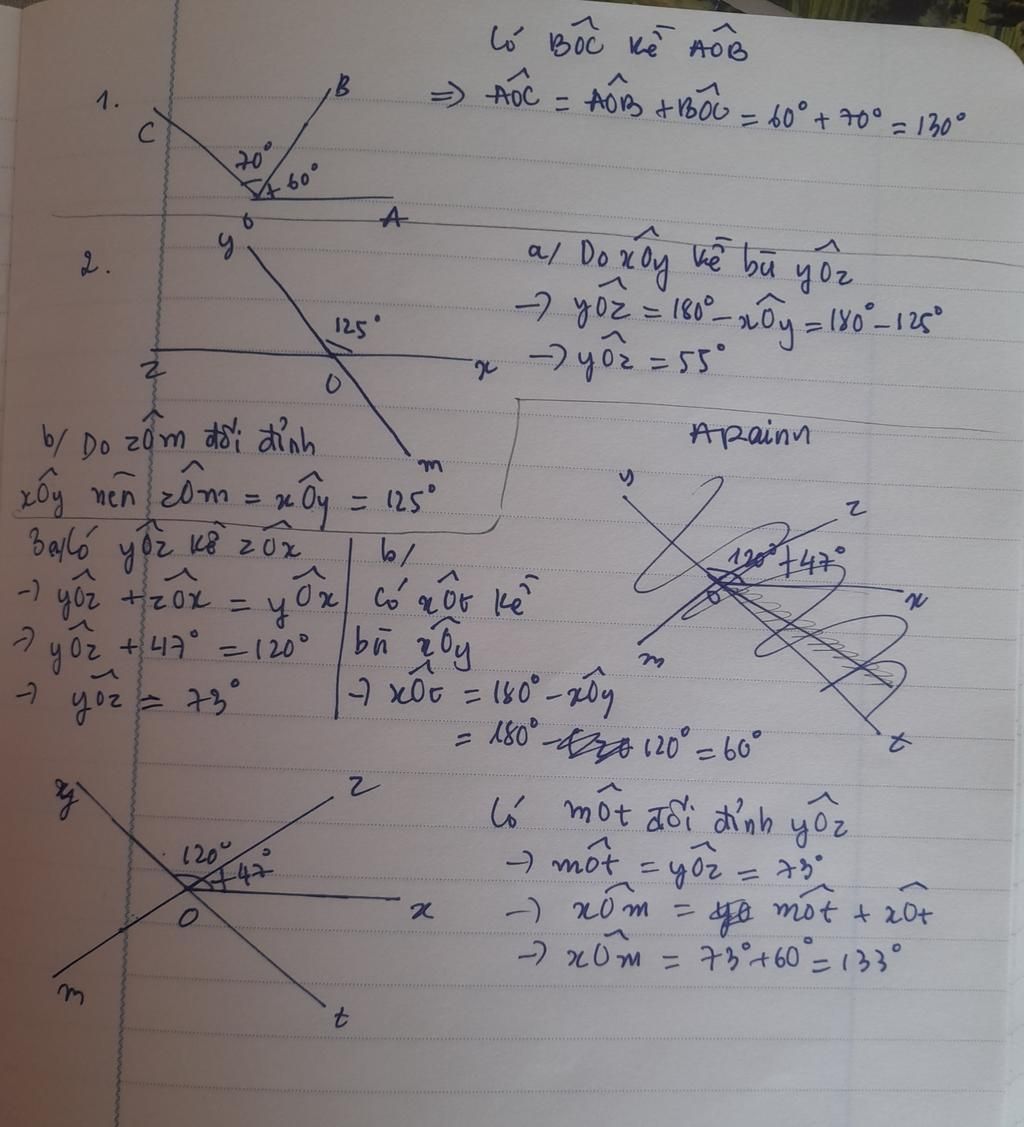 Có BÔC kề AÔB
1.
⇒ AÔC = AÔB + BÔC = 60° + 70° = 130°
B
C
70°
60°
O
A
2.
y
125°
z
O
x
m
a/ Do xÔy kề bù yÔz
→ yÔz = 180° - xÔy = 180° - 125°
→ yÔz = 55°
b/ Do zÔm đối đỉnh
xÔy nên zÔm = xÔy = 125°
Arainn
y
z
120°
47°
O
x
m
t
3a/ Có yÔz kề zÔx
→ yÔz + zÔx = yÔx
→ yÔz + 47° = 120°
→ yÔz = 73°
b/
Có xÔt kề
bù xÔy
→ xÔt = 180° - xÔy
= 180° - 120° = 60°
y
z
120°
47°
O
x
m
t
Có mÔt đối đỉnh yÔz
→ mÔt = yÔz = 73°
→ xÔm = mÔt + xÔt
→ xÔm = 73° + 60° = 133°